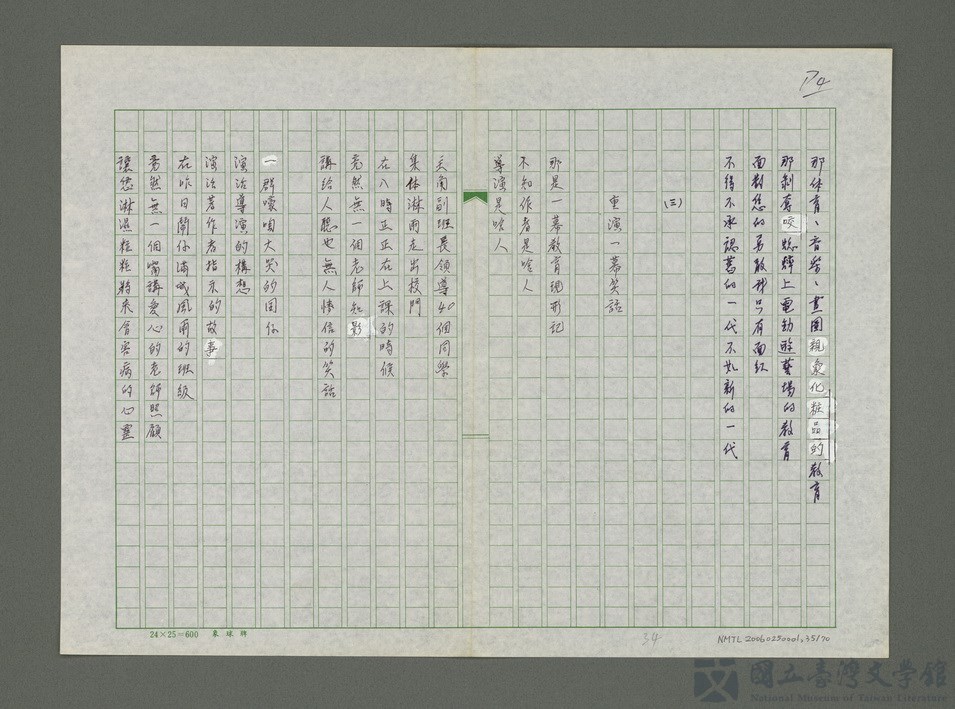 P4
那体育、音樂、畫圖親象化粧品的教育
那剝蕉咬 牌上電動遊藝場的教育
面對您的勇敢我只有面紅
不得不承認舊的一代不如新的一代
(三)
重演一幕笑話
那是一幕教育現形記
不知作者是啥人
導演是啥人
副班長領導40個同學
集体淋雨走出校門
在八時正正在上課的時候
竟然無一個老師知影
講給人聽也無人情信的笑話
一群嚎咱大哭的囝仔
演活導演的構想
演活著作者指示的故事
在昨日鬧仔滿城風雨的班級
竟然無一個嘴講愛心的老師照顧
讓您淋濕粒粒將來會害病的心靈
24×25=600
34
NMTL20060290001,35/70
國立臺灣文學館
National Museum of Taiwan Literature